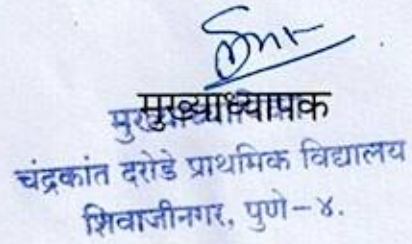 मुख्याध्यापक
मुख्याध्यापक
चंद्रकांत दरोडे प्राथमिक विद्यालय
शिवाजीनगर, पुणे-४.